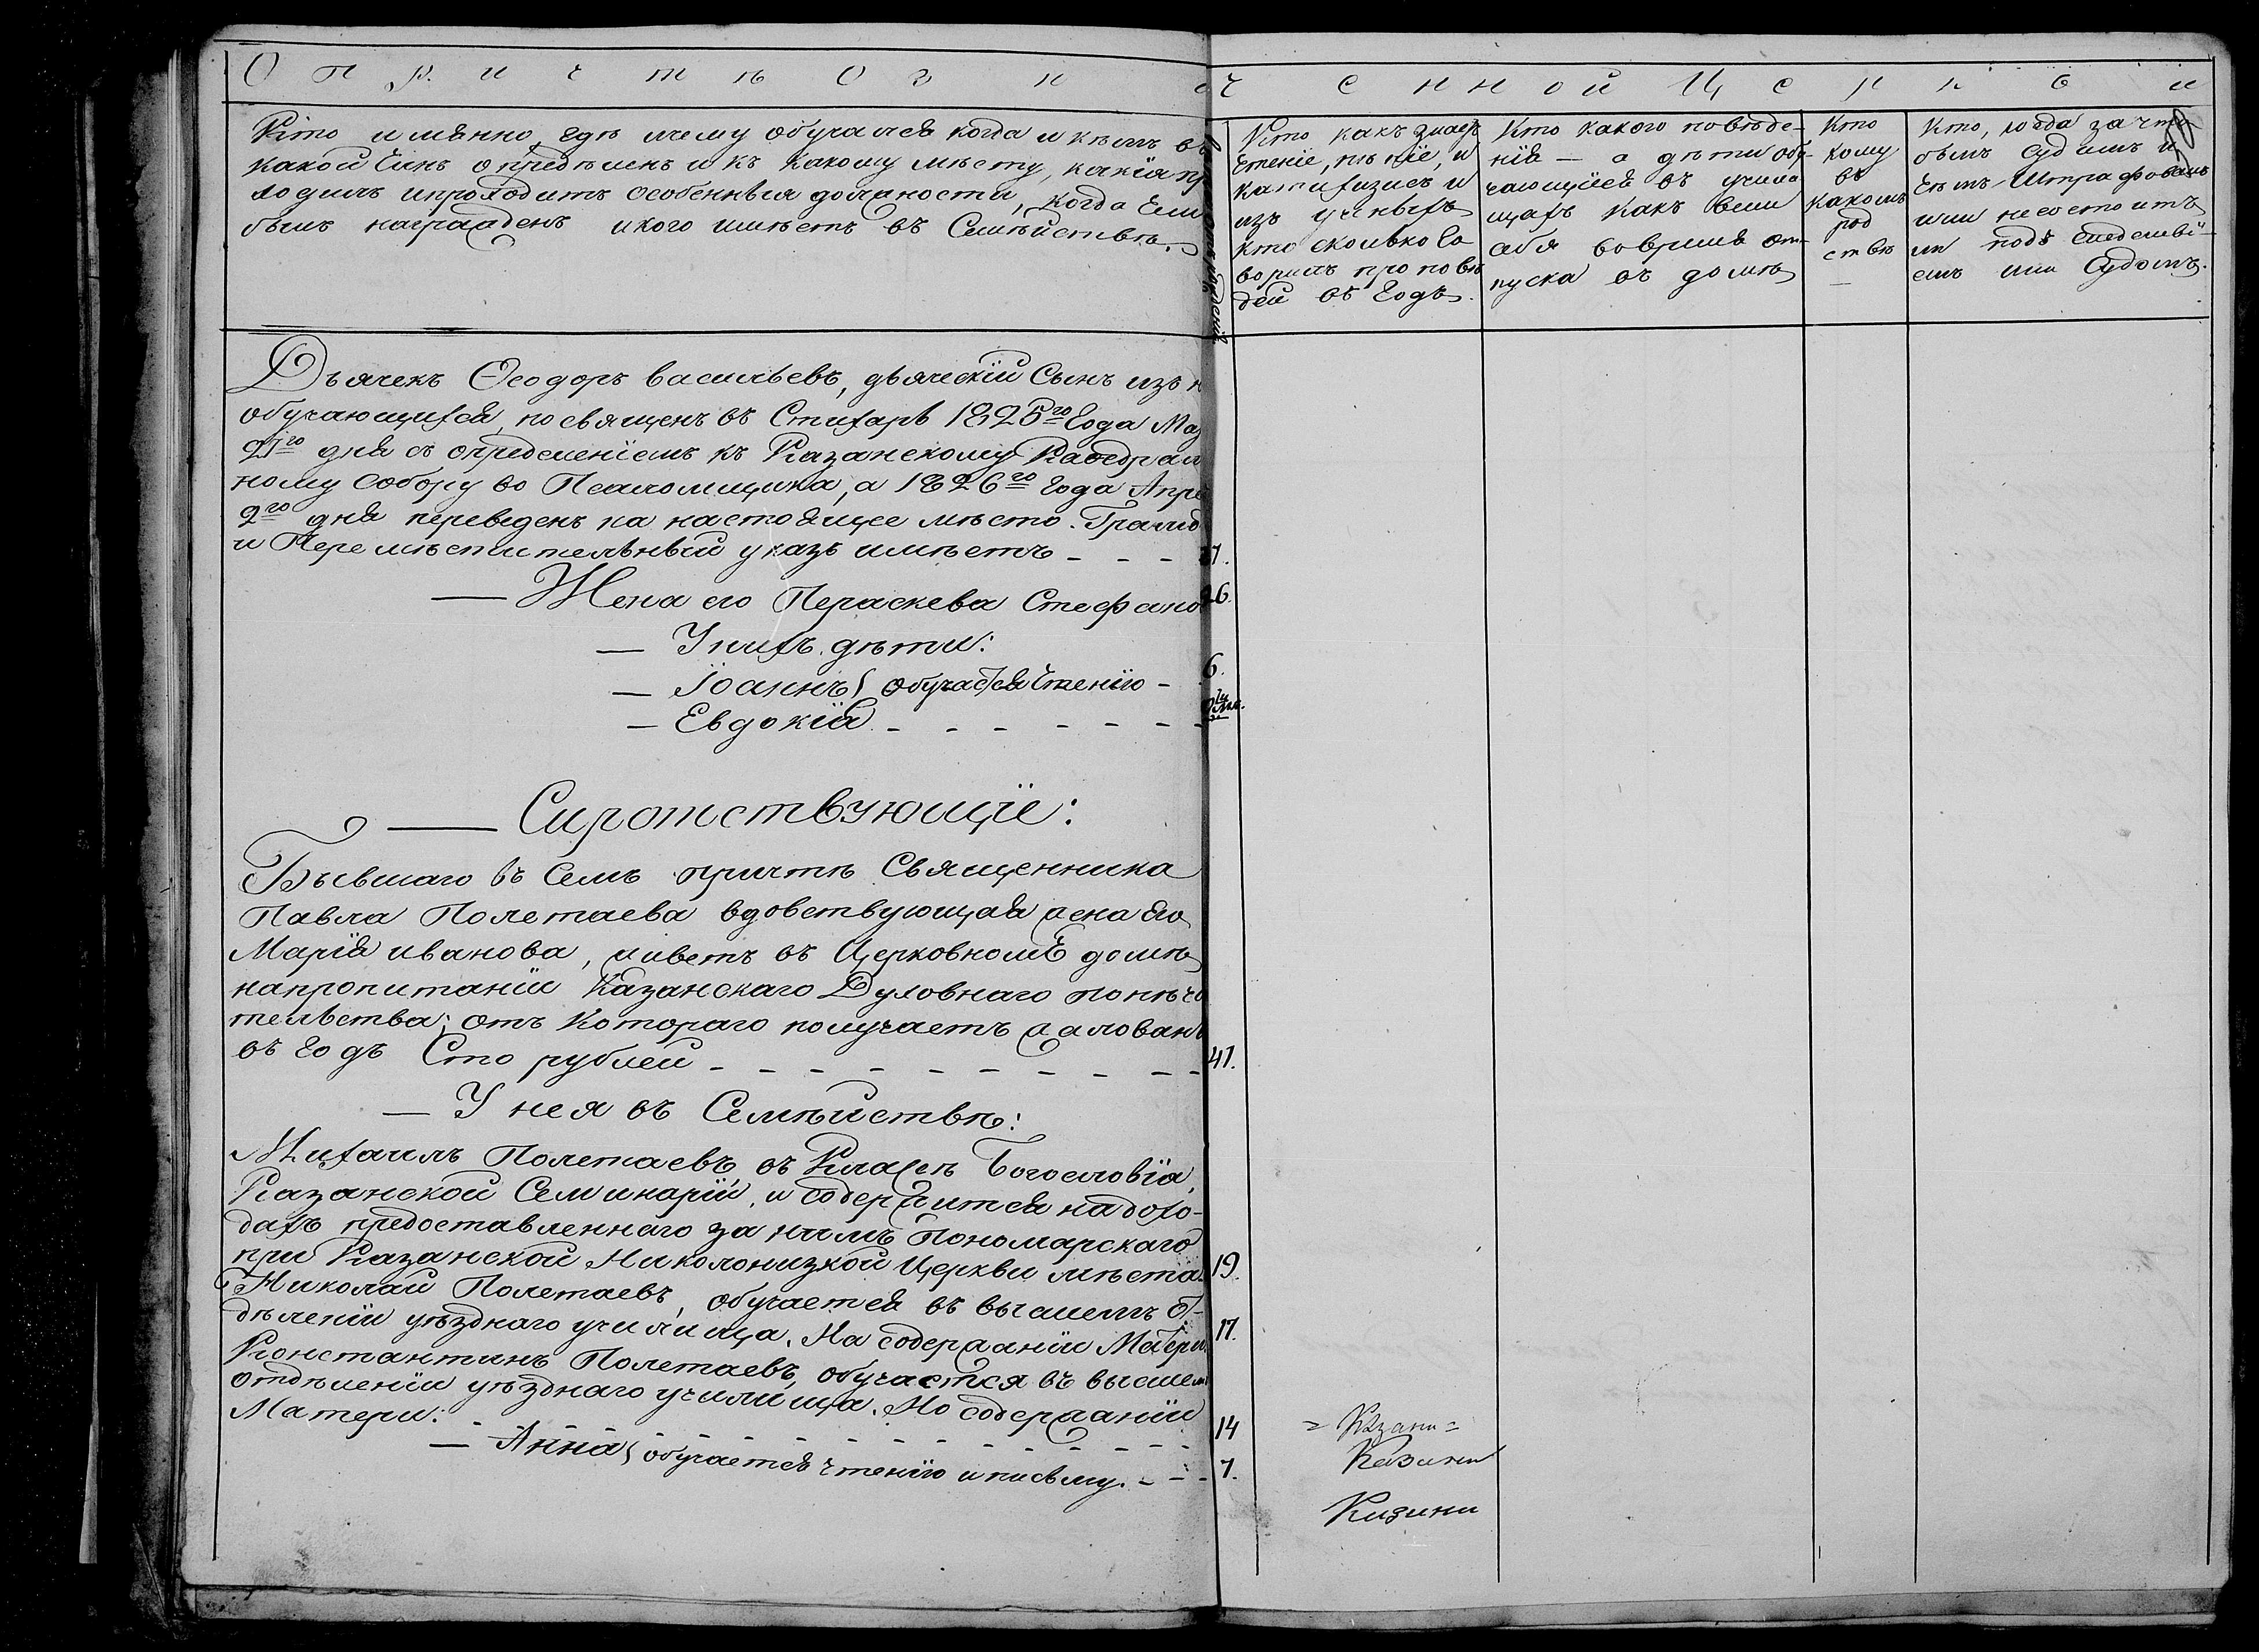 О п р и ч т ѣ о з н
ч е н н о й Ц е р к в и
Кто имянно, гдѣ и чему обучался когда и кѣмъ въ
какой Чинъ опредѣленъ и къ какому мѣсту, какія пр
ходилъ и проходитъ особенныя должности, когда Чем
былъ награжденъ и кого имѣетъ въ Семѣйствѣ.
Кто какъ знаер
Чтеніе, пѣніе, и
катихизисъ и
изъ ученыхъ
кто сколько го
ворилъ проповѣ
дей въ годъ.
Кто какого поведе-
нія — а дѣти обу-
чающіеся въ учили
щахъ какъ вели
себя во время от-
пуска въ домъ
Кто
кому
въ
какомъ
род
ствѣ
—
Кто, когда за что
былъ судимъ и
Чѣмъ Штрафованъ
или не состоитъ
ли подъ Следстві-
емъ или Судомъ.
Дьячекъ Ѳеодоръ Васильевъ, дьяческій Сынъ изъ н
обучающихся, посвященъ въ Стихарь 1825го Года Ма
21го дня съ опредѣленіемъ къ Казанскому Каѳедрал
ному Собору во Псаломщика, а 1826го Года Апре
2го дня переведенъ на настоящее мѣсто. Грамо
и Перемѣстительный указъ имѣетъ - - - 27.
— Жена его Пераскева Стефано 26.
— У нихъ дѣти:
— Іоаннъ} обучается Чтенію - 6.
— Евдокія - - - - - -
— Сиротствующіе:
Бывшаго въ семъ причтѣ Священника
Павла Полетаева вдовствующая жена Его
Марія Иванова, живетъ въ Церковномъ домѣ
на пропитаніи Казанскаго Духовнаго попѣчи
тельства; отъ Котораго получаетъ жалован
въ годъ Сто рублей - - - - - - - - - 41.
— У нея въ Семѣйствѣ:
Михаилъ Полетаевъ, въ Классѣ Богословія,
Казанской Семинаріи, и содержится на дохо-
дахъ предоставленнаго за нимъ Пономарскаго
при Казанской Николонизкой Церкви мѣста. 19.
Николай Полетаевъ, обучается въ высшемъ От-
дѣленіи уѣзднаго училища. На содержаніи Матери. 17.
Константинъ Полетаевъ, обучается въ высшем
отдѣленіи уѣзднаго училища. На содержаніи
Матери. - - - - - - - - - - - - 14
— Анна} обучается чтенію и письму. - - - 7.
= Казани =
Казани
Казани